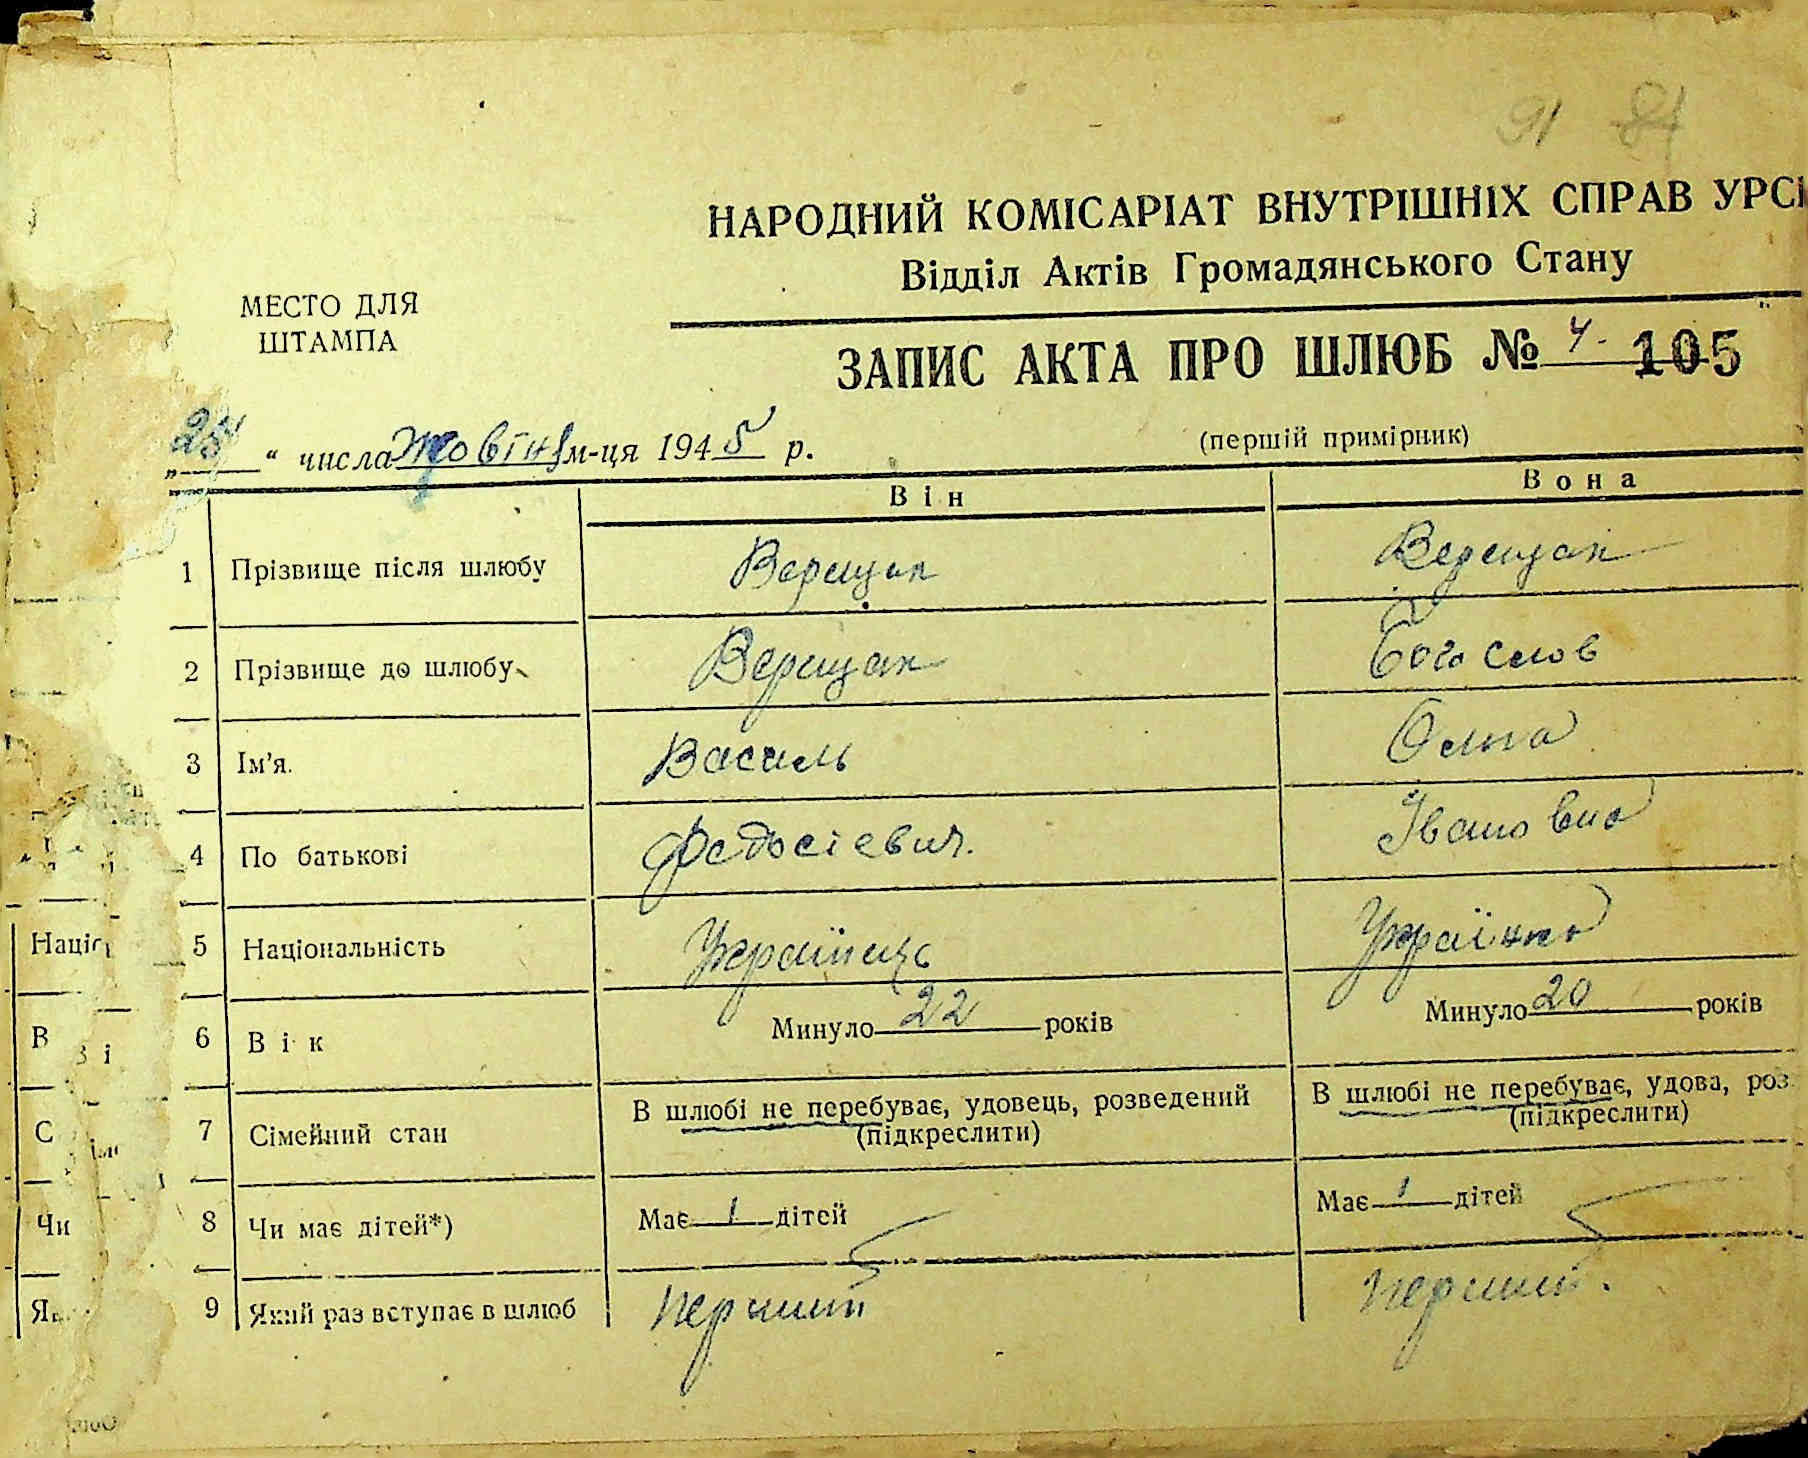 91 81
НАРОДНИЙ КОМІСАРІАТ ВНУТРІШНІХ СПРАВ УРСР
Відділ Актів Громадянського Стану
МЕСТО ДЛЯ
ШТАМПА
ЗАПИС АКТА ПРО ШЛЮБ № 4. 105
„ “ числа Жовтня м-ця 1945 р.
(першій примірник)
Він Вона
1 Прізвище після шлюбу Верещак Верещак
2 Прізвище до шлюбу Верещак Богослов
3 Ім'я. Василь Ольга
4 По батькові Федосієвич. Івановна
5 Національність Українець Українка
6 Вік Минуло 22 років Минуло 20 років
7 Сімейний стан В шлюбі не перебуває, удовець, розведений В шлюбі не перебуває, удова, роз
(підкреслити) (підкреслити)
8 Чи має дітей*) Має 1 дітей Має 1 дітей
9 Який раз вступає в шлюб перший перший.